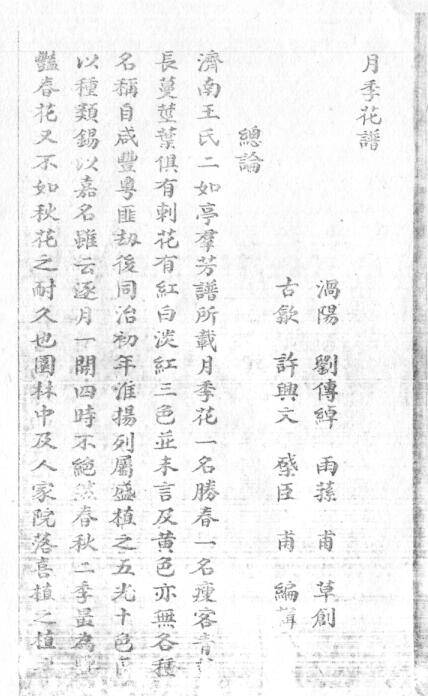 月季花譜
渦陽 劉傳綽 雨蓀 甫 草創
古歙 許興文 榘臣 甫 編輯
總論
濟南王氏二如亭羣芳譜所載月季花一名勝春一名瘦客青莖
長蔓莖葉俱有刺花有紅白淡紅三色並未言及黃色亦無各種
名稱自咸豐粵匪刼後同治初年淮揚列屬盛植之五光十色
以種類錫以嘉名雖云逐月一開四時不絕然春秋二季最為
豔春花又不如秋花之耐久也園林中及人家院落喜植之植